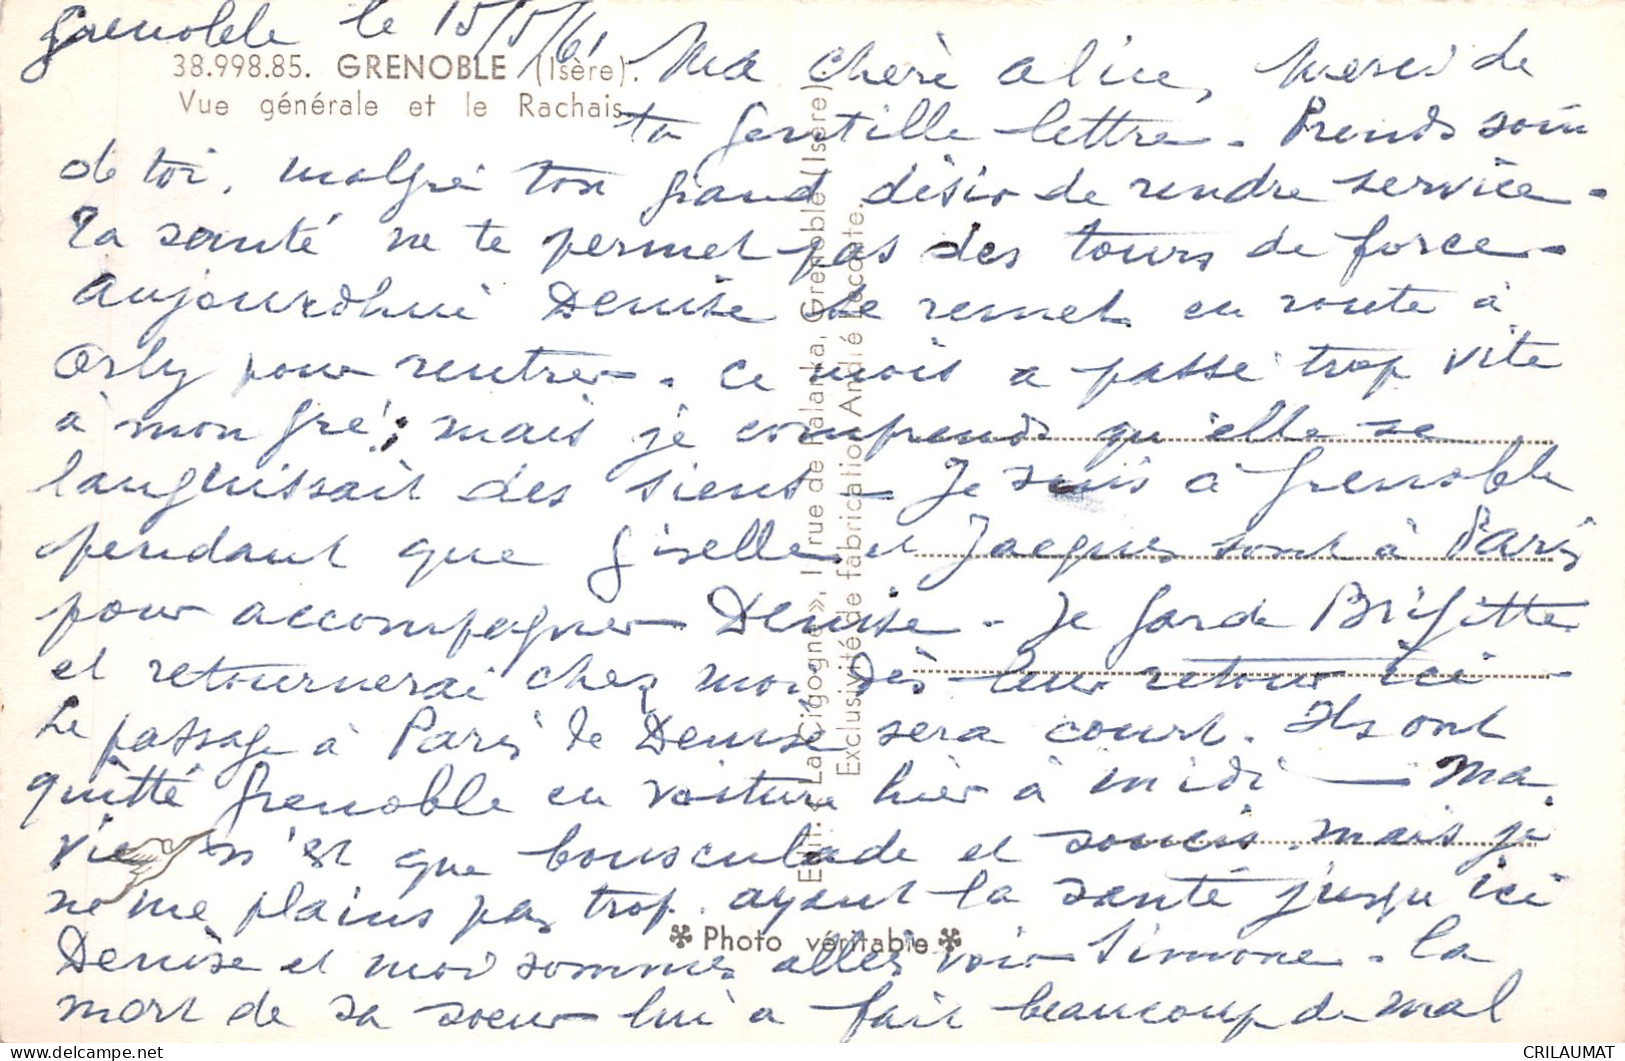 Grenoble le 15/5/61
38.998.85. GRENOBLE (Isère).
Vue générale et le Rachais
Ma chère alice, Merci de
ta gentille lettre. Prends soin
de toi, malgré ton grand désir de rendre service.
Ta santé ne te permet pas des tours de force.
Aujourdhui Denise se remet en route à
Orly pour rentrer. Ce mois a passé trop vite
à mon gré; mais je comprends qu'elle se
languissait des siens. Je suis à Grenoble
pendant que Giselle et Jacques sont à Paris
pour accompagner Denise. Je garde Brigitte
et retournerai chez moi dès leur retour ici.
Le passage à Paris de Denise sera court. Ils ont
quitté Grenoble en voiture hier à midi — Ma
vie n'est que bousculade et soucis. mais je
ne me plains pas trop. ayant la santé jusqu'ici
Denise et moi sommes allés voir Simone. la
mort de sa soeur lui a fait beaucoup de mal
Edit. « La Cigogne », 1 rue de Palanka, Grenoble (Isère)
Exclusivité de fabrication André Lecomte.
Photo véritable
CRILAUMAT
delcampe.net